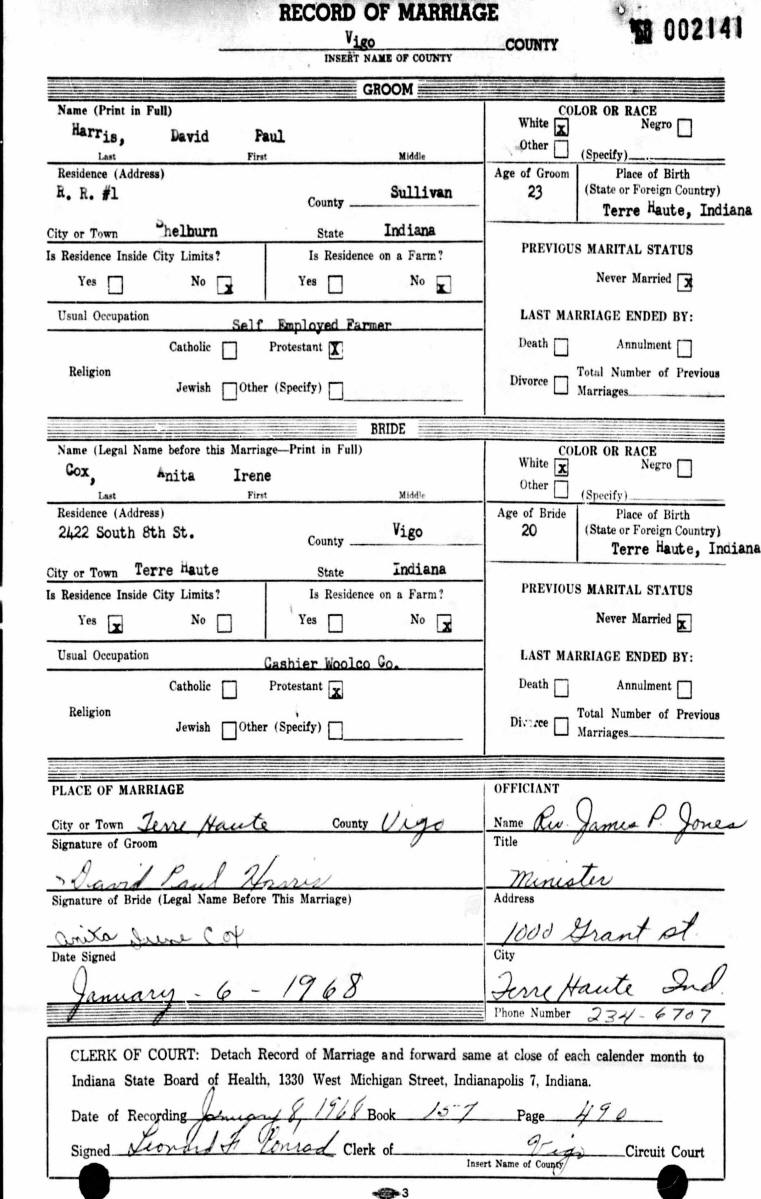 RECORD OF MARRIAGE
002141
Vigo COUNTY
INSERT NAME OF COUNTY
GROOM
Name (Print in Full)
Harris, David Paul
Last First Middle
COLOR OR RACE
White x Negro
Other (Specify)
Residence (Address)
R. R. #1
County Sullivan
Age of Groom
23
Place of Birth
(State or Foreign Country)
Terre Haute, Indiana
City or Town Shelburn State Indiana
Is Residence Inside City Limits?
Yes No x
Is Residence on a Farm?
Yes No x
PREVIOUS MARITAL STATUS
Never Married x
Usual Occupation Self Employed Farmer
LAST MARRIAGE ENDED BY:
Death Annulment
Divorce Total Number of Previous
Marriages
Religion
Catholic Protestant X
Jewish Other (Specify)
BRIDE
Name (Legal Name before this Marriage—Print in Full)
Cox, Anita Irene
Last First Middle
COLOR OR RACE
White x Negro
Other (Specify)
Residence (Address)
2422 South 8th St.
County Vigo
Age of Bride
20
Place of Birth
(State or Foreign Country)
Terre Haute, Indiana
City or Town Terre Haute State Indiana
Is Residence Inside City Limits?
Yes x No
Is Residence on a Farm?
Yes No x
PREVIOUS MARITAL STATUS
Never Married x
Usual Occupation Cashier Woolco Co.
LAST MARRIAGE ENDED BY:
Death Annulment
Divorce Total Number of Previous
Marriages
Religion
Catholic Protestant x
Jewish Other (Specify)
PLACE OF MARRIAGE
City or Town Terre Haute County Vigo
Signature of Groom
David Paul Harris
Signature of Bride (Legal Name Before This Marriage)
Anita Irene Cox
Date Signed
January - 6 - 1968
OFFICIANT
Name Rev. James P. Jones
Title
Minister
Address
1000 Grant st.
City
Terre Haute Ind.
Phone Number 234-6707
CLERK OF COURT: Detach Record of Marriage and forward same at close of each calender month to
Indiana State Board of Health, 1330 West Michigan Street, Indianapolis 7, Indiana.
Date of Recording January 8, 1968 Book 157 Page 490
Signed Leonard F Conrad Clerk of Vigo Circuit Court
Insert Name of County
3